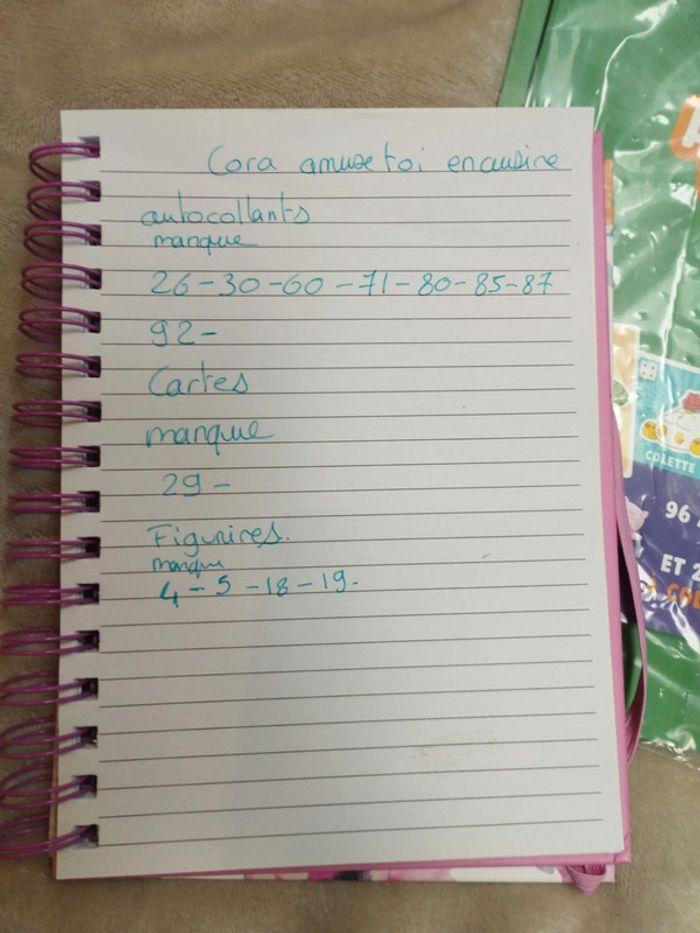 Cora amuse toi encuisine
autocollants
manque
26-30-60-71-80-85-87
92-
Cartes
manque
29-
Figurires.
manque
4-5-18-19.
COLETTE
96
ET 2